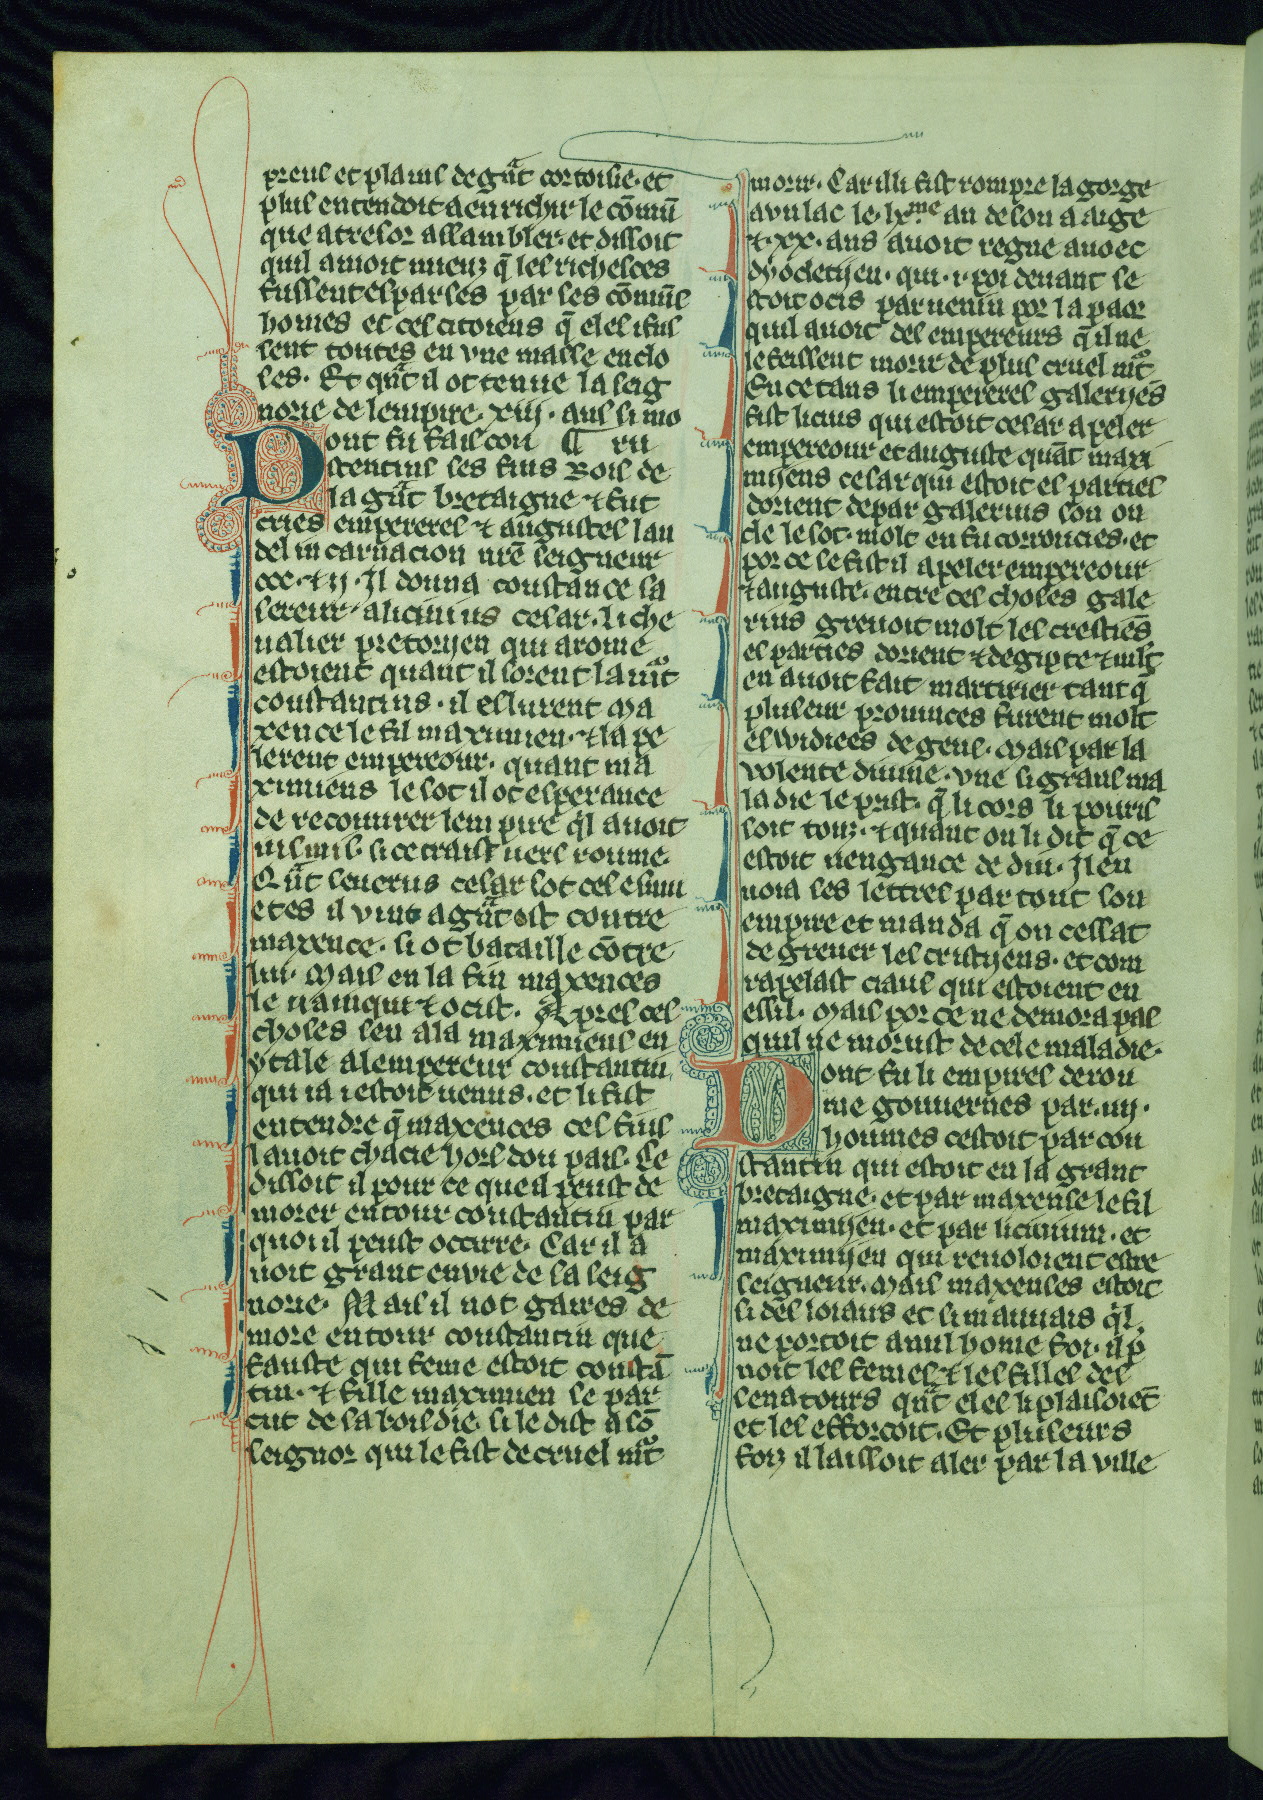 preus et plains de gr̃at cortoisie. et
plus entendoit a enrichir le cōmū
que a tresor assambler. et dissoit
quil amoit mieuz q̄ les richesces
fussent esparses par ses cōmuns
homes et ces citoiens q̄ eles i fus
sent toutes en vne masse enclo
ses. Et qũat il ot tenue la seig
norie de lempire. xiij. ans si mo
Dont fu fais con ¶ ru
stentins ses fius Rois de
la gr̃at bretaigne ⁊ fut
cries empereres ⁊ augustes lan
del incarnacion nr̄e seigneur
ccc. ⁊ ij. Il donna constance sa
sereur a licinius cesar. li che
ualier pretorijen qui a rome
estoient quant il sorent la mort
constantius. il eslurent Ma
xence le fil maximien. ⁊ la pe
lerent empereour. quant ma
ximiens le sot il ot esperance
de recouurer lempire q̄l auoit
si ce traist uers roume.
Qũat seuerus cesar sot ces esmu
etes il vint a gr̃at ost contre
maxence. si ot bataille cōtre
lui. Mais en la fin maxences
le uainqui ⁊ ocist. Apres ces
choses sen ala maximiens en
ytale a lempereur constantin
qui ia i estoit uenus. et li fist
entendre q̄ maxences ces fius
lauoit chacie hors dou pais. Ce
dissoit il pour ce que il peust de
morer entour constantin par
quoi il peust occirre. Car il a
uoit grant envie de la seig
norie. Mais il not gaires de
more entour constantin que
fauste qui feme estoit constā
tin. ⁊ fille maximien se par
cut de sa boisdie. si le dist a sō
seignor qui le fist de cruel mort
morir. Car il li fist rompre la gorge
a vn lac le. lxme. an de son aaige
⁊. xx. ans auoit regne auoec
dyocletijen. qui. i. poi deuant se
stoit ocis par uenin por la paor
quil auoit des empereurs q̄ il ne
le feissent morir de plus cruel mort
En ce tans li empereres galeryēs
fist licius qui estoit cesar apeler
empereour et auguste quāt maxi
mijens cesar qui estoit es parties
dorient de par galerius son on
cle le sot. molt en fu corroucies. et
por ce se fist il apeler empereour
⁊ auguste. entre ces choses gale
rius greuoit molt les crestiēs
es parties dorient ⁊ degipte ⁊ mlt
en auoit fait martirier tant q̄
pluseur prouinces furent molt
eswidiees de gens. Mais par la
volente diuine. vne si grans ma
ladie le prist. q̄ li cors li pouris
soit touz. ⁊ quant on li dit q̄ ce
estoit uengance de diu. Il en
uoia ses lettres par tout son
empire et manda q̄ on cessat
de greuer les cristijens. et com
rapelast ciaus qui estoient en
essil. Mais por ce ne demora pas
quil ne morust de cele maladie.
Dont fu li empires de rou
me gouuernes par. iiij.
hommes cestoit par con
stantin qui estoit en la grant
bretaigne. et par maxense le fil
maximijen. et par licinium. et
maximijen qui reuoloient estre
seigneur. Mais maxenses estoit
si desloiaus et si mauuais q̄l
ne portoit a nul home foi. il p̄
noit les femes ⁊ les filles des
senatours qũat eles li plaisoiēt
et les efforcoit. Et pluseurs
foiz il laissoit aler par la ville